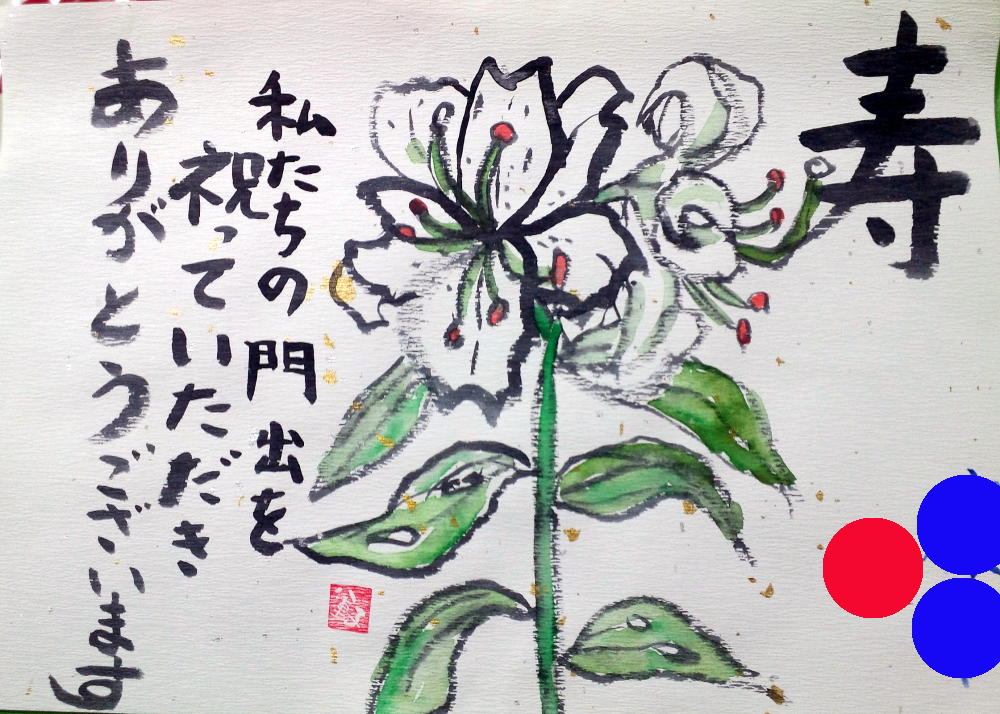 寿
私たちの門出を
祝っていただき
ありがとうございます